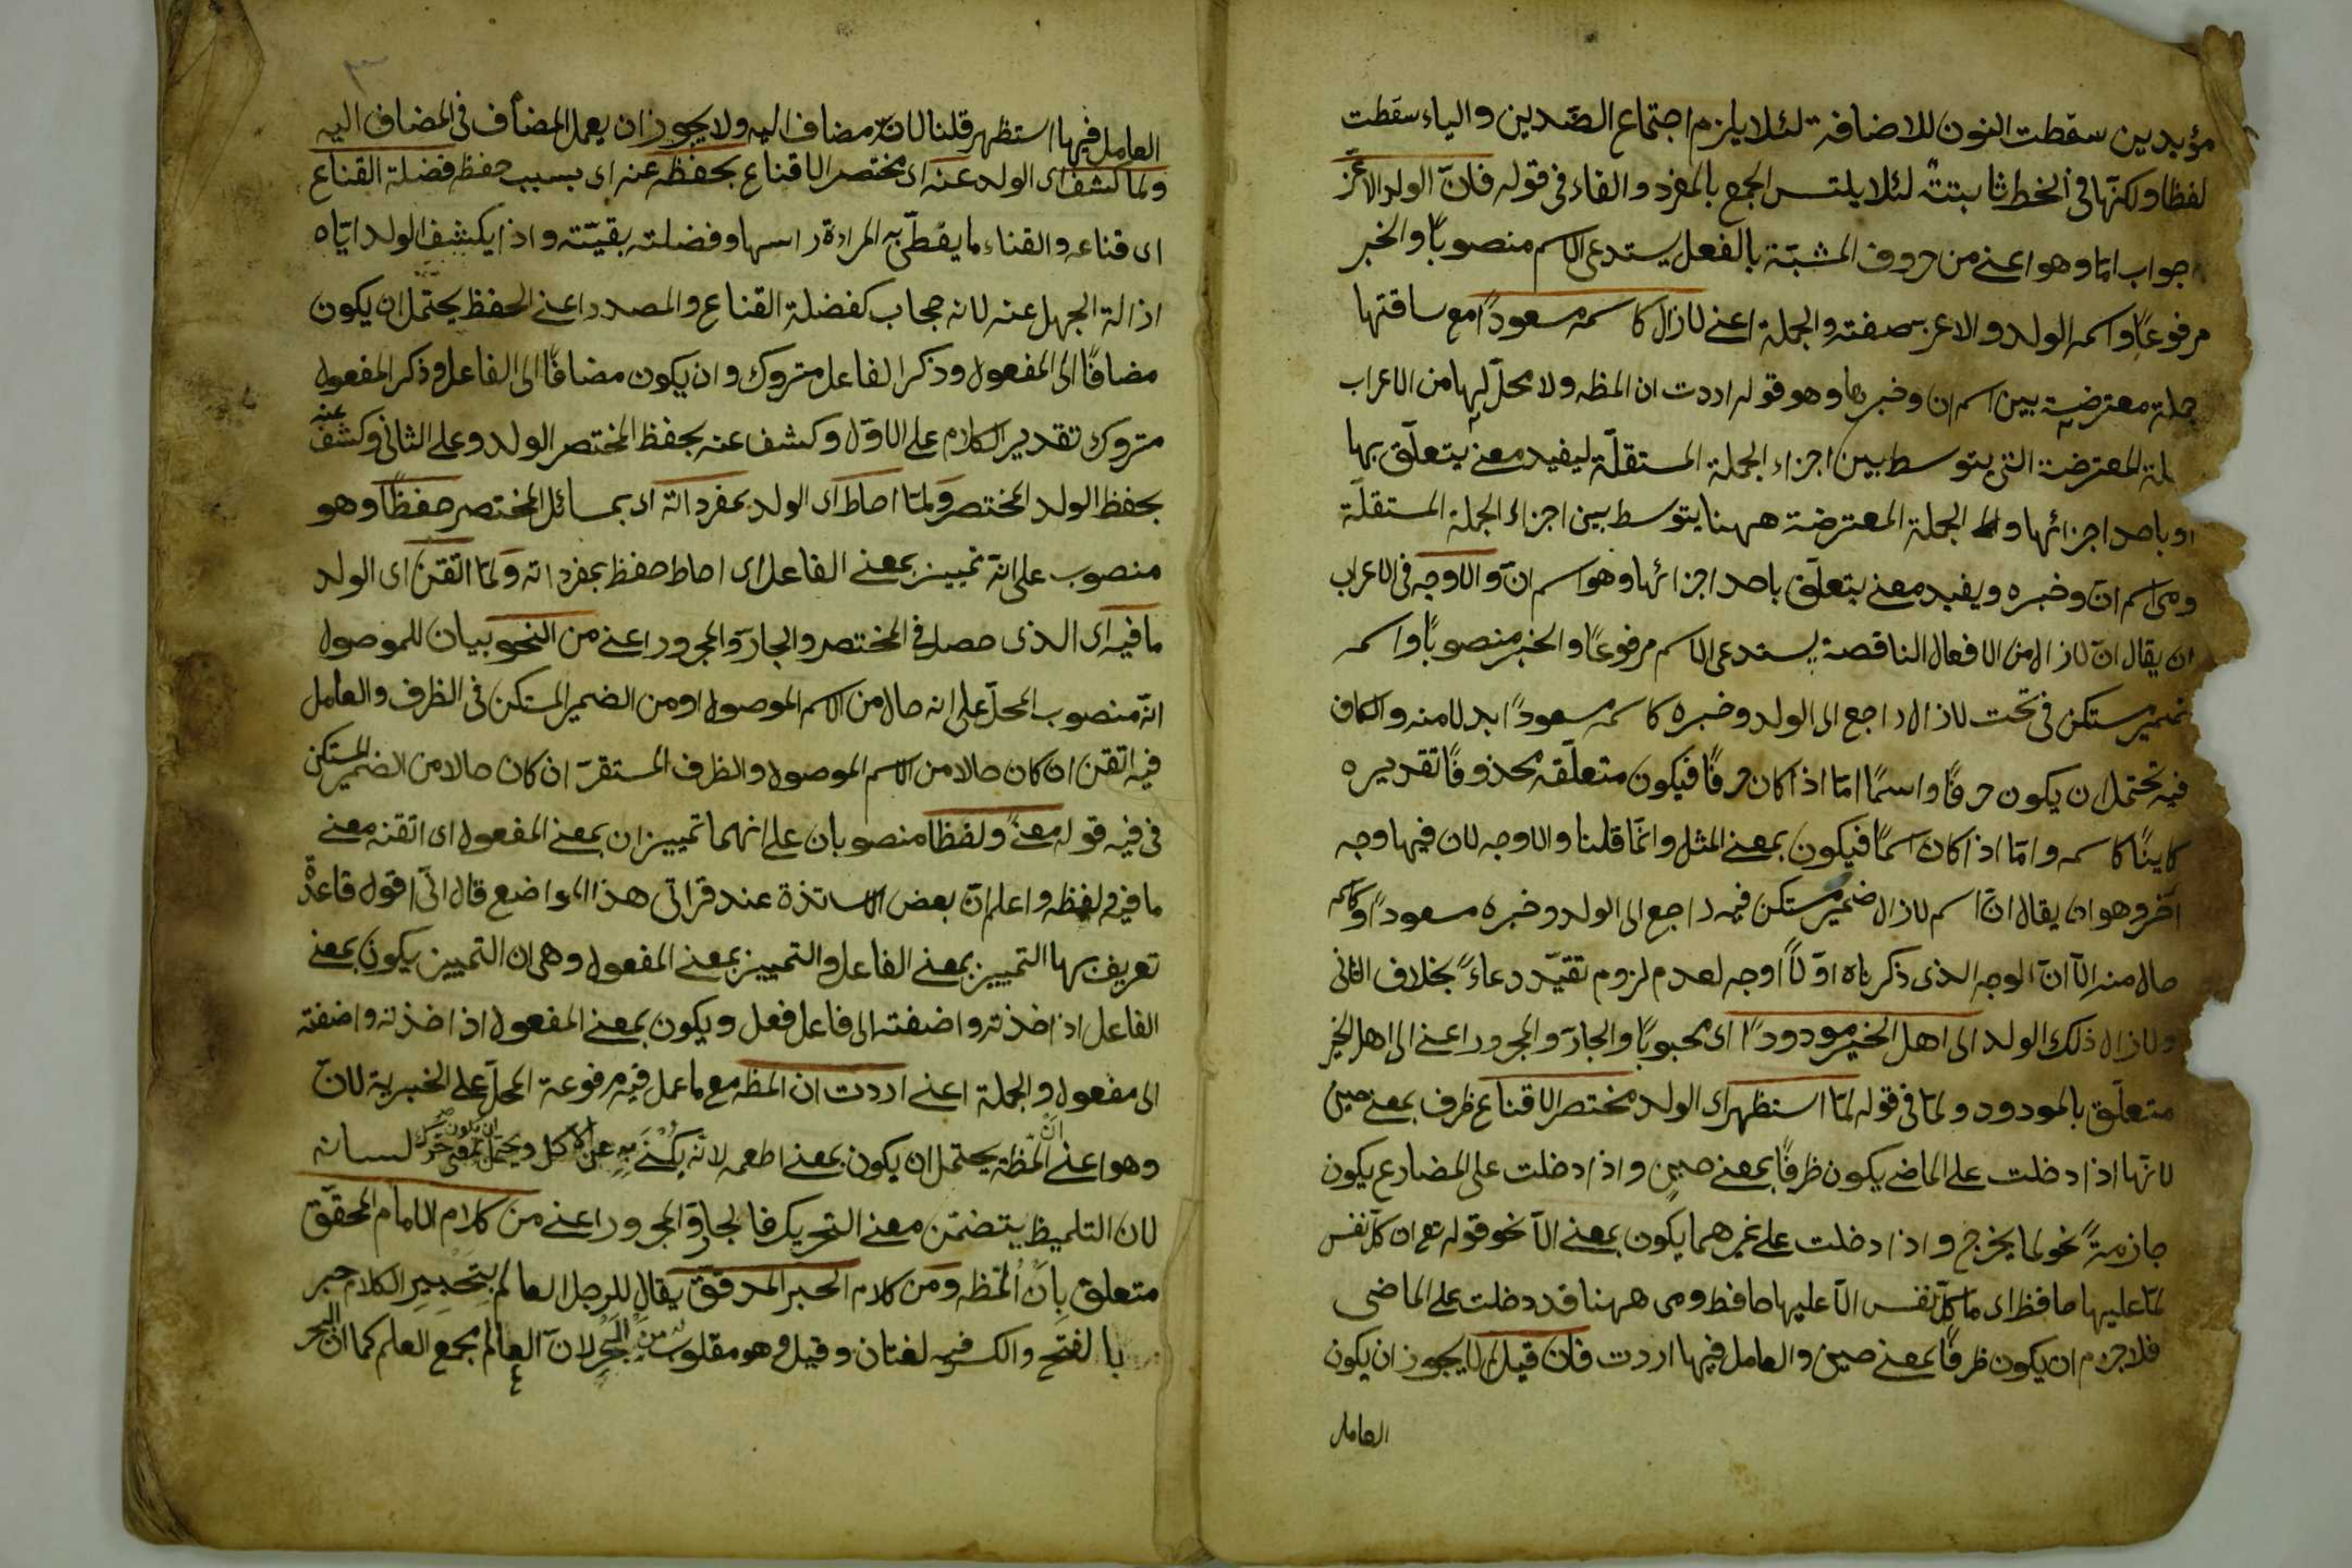 مؤبدين سقطت النون للاضافة لئلا يلزم اجتماع الضدين والياء سقطت
لفظا ولكنها فى الخط ثابتة لئلا يلتبس الجمع بالمفرد والفاء فى قوله فان الولد الاعز
جواب اما وهو اعنى من حروف المشبهة بالفعل يستدعى الاسم منصوبا والخبر
مرفوعا واسمه الولد والاعز صفته والجملة اعنى لازال كاسمه مسعودا مع ساقتها
جملة معترضة بين اسم ان وخبرها وهو قوله اردت ان المظه ولا محل لها من الاعراب
لمة المعترضة التى يتوسط بين اجزاء الجملة المستقلة ليفيد معنى يتعلق بها
او باحد اجزائها والجملة المعترضة ههنا يتوسط بين اجزاء الجملة المستقلة
وهى اسم ان وخبره ويفيد معنى يتعلق باحد اجزائها وهو اسم ان والاوجه فى الاعراب
ان يقال ان لازال من الافعال الناقصة يستدعى الاسم مرفوعا والخبر منصوبا واسمه
ضمير مستكن فى تحت لازال راجع الى الولد وخبره كاسمه مسعودا بدلا منه والكاف
فيه تحتمل ان يكون حرفا واسما اما اذا كان حرفا فيكون متعلقه محذوفا تقديره
كاينا كاسمه واما اذا كان اسما فيكون بمعنى المثل وانما قلنا والاوجه لان فيها وجه
آخر وهو ان يقال ان اسم لازال ضمير مستكن فيه راجع الى الولد وخبره مسعودا وكاسمه
حال منه الا ان الوجه الذى ذكرناه اولا اوجه لعدم لزوم تقيد دعاء بخلاف الثانى
ولازال ذلك الولد الى اهل الخير مودودا اى محبوبا والجار والمجرور اعنى الى اهل الخير
متعلق بالمودود ولما فى قوله لما استظهر اى الولد مختصر الاقناع ظرف بمعنى حين
لانها اذا دخلت على الماضى يكون ظرفا بمعنى حين واذا دخلت على المضارع يكون
جازمة نحو لما يخرج واذا دخلت على غيرهما يكون بمعنى الا نحو قوله تع ان كل نفس
لما عليها حافظ اى ما كل نفس الا عليها حافظ وهى ههنا قد دخلت على الماضى
فلا جرم ان يكون ظرفا بمعنى حين والعامل فيها اردت فان قيل لم لا يجوز ان يكون
العامل
٣
العامل فيها استظهر قلنا لانه مضاف اليه ولا يجوز ان يعمل المضاف فى المضاف اليه
ولما كشف اى الولد عنه اى مختصر الاقناع بحفظه عنه اى بسبب حفظه فضلة القناع
اى قناعه والقناء ما يغطى به المرادة راسها وفضلته بقيته واذا يكشف الولد اياه
اذالة الجهل عنه لانه حجاب كفضلة القناع والمصدر اعنى الحفظ يحتمل ان يكون
مضافا الى المفعول وذكر الفاعل متروك وان يكون مضافا الى الفاعل وذكر المفعول
متروك تقدير الكلام على الاول وكشف عنه بحفظ المختصر الولد وعلى الثانى وكشف عنه
بحفظ الولد المختصر ولما احاط اى الولد بمفرداته اى بمسائل المختصر حفظا وهو
منصوب على انه تمييز بمعنى الفاعل اى احاط حفظ بمفرداته ولما اتقن اى الولد
ما فيه اى الذى حصل فى المختصر والجار والمجرور اعنى من النحو بيان للموصول
انه منصوب المحل على انه حال من الاسم الموصول او من الضمير المستكن فى الظرف والعامل
فيه اتقن ان كان حالا من الاسم الموصول والظرف المستقر ان كان حالا من الضمير المستكن
فى فيه قوله معنى ولفظا منصوبان على انهما تمييزان بمعنى المفعول اى اتقنه معنى
ما فيه لفظه واعلم ان بعض الاساتذة عند قرائى هذا المواضع قال انى اقول قاعدة
تعريف بها التمييز بمعنى الفاعل والتمييز بمعنى المفعول وهى ان التمييز يكون بمعنى
الفاعل اذا اخذته واضفته الى فاعل فعل ويكون بمعنى المفعول اذا اخذته واضفته
الى مفعول والجملة اعنى اردت ان المظه مع ما عمل فيه مرفوعة المحل على الخبرية لان
وهو اعنى ان المظه يحتمل ان يكون بمعنى اطعمه لانه يكنى به عن الاكل ويحتمل ان يكون بمعنى حرك لسانه
لان التلميظ يتضمن معنى التحريك فالجار والمجرور اعنى من كلام الامام المحقق
متعلق بان المظه ومن كلام الحبر المدقق يقال للرجل العالم بتحبير الكلام حبر
بالفتح والكسر فيه لغتان وقيل هو مقلوب من البحر لان العالم بجمع العلم كما ان البحر